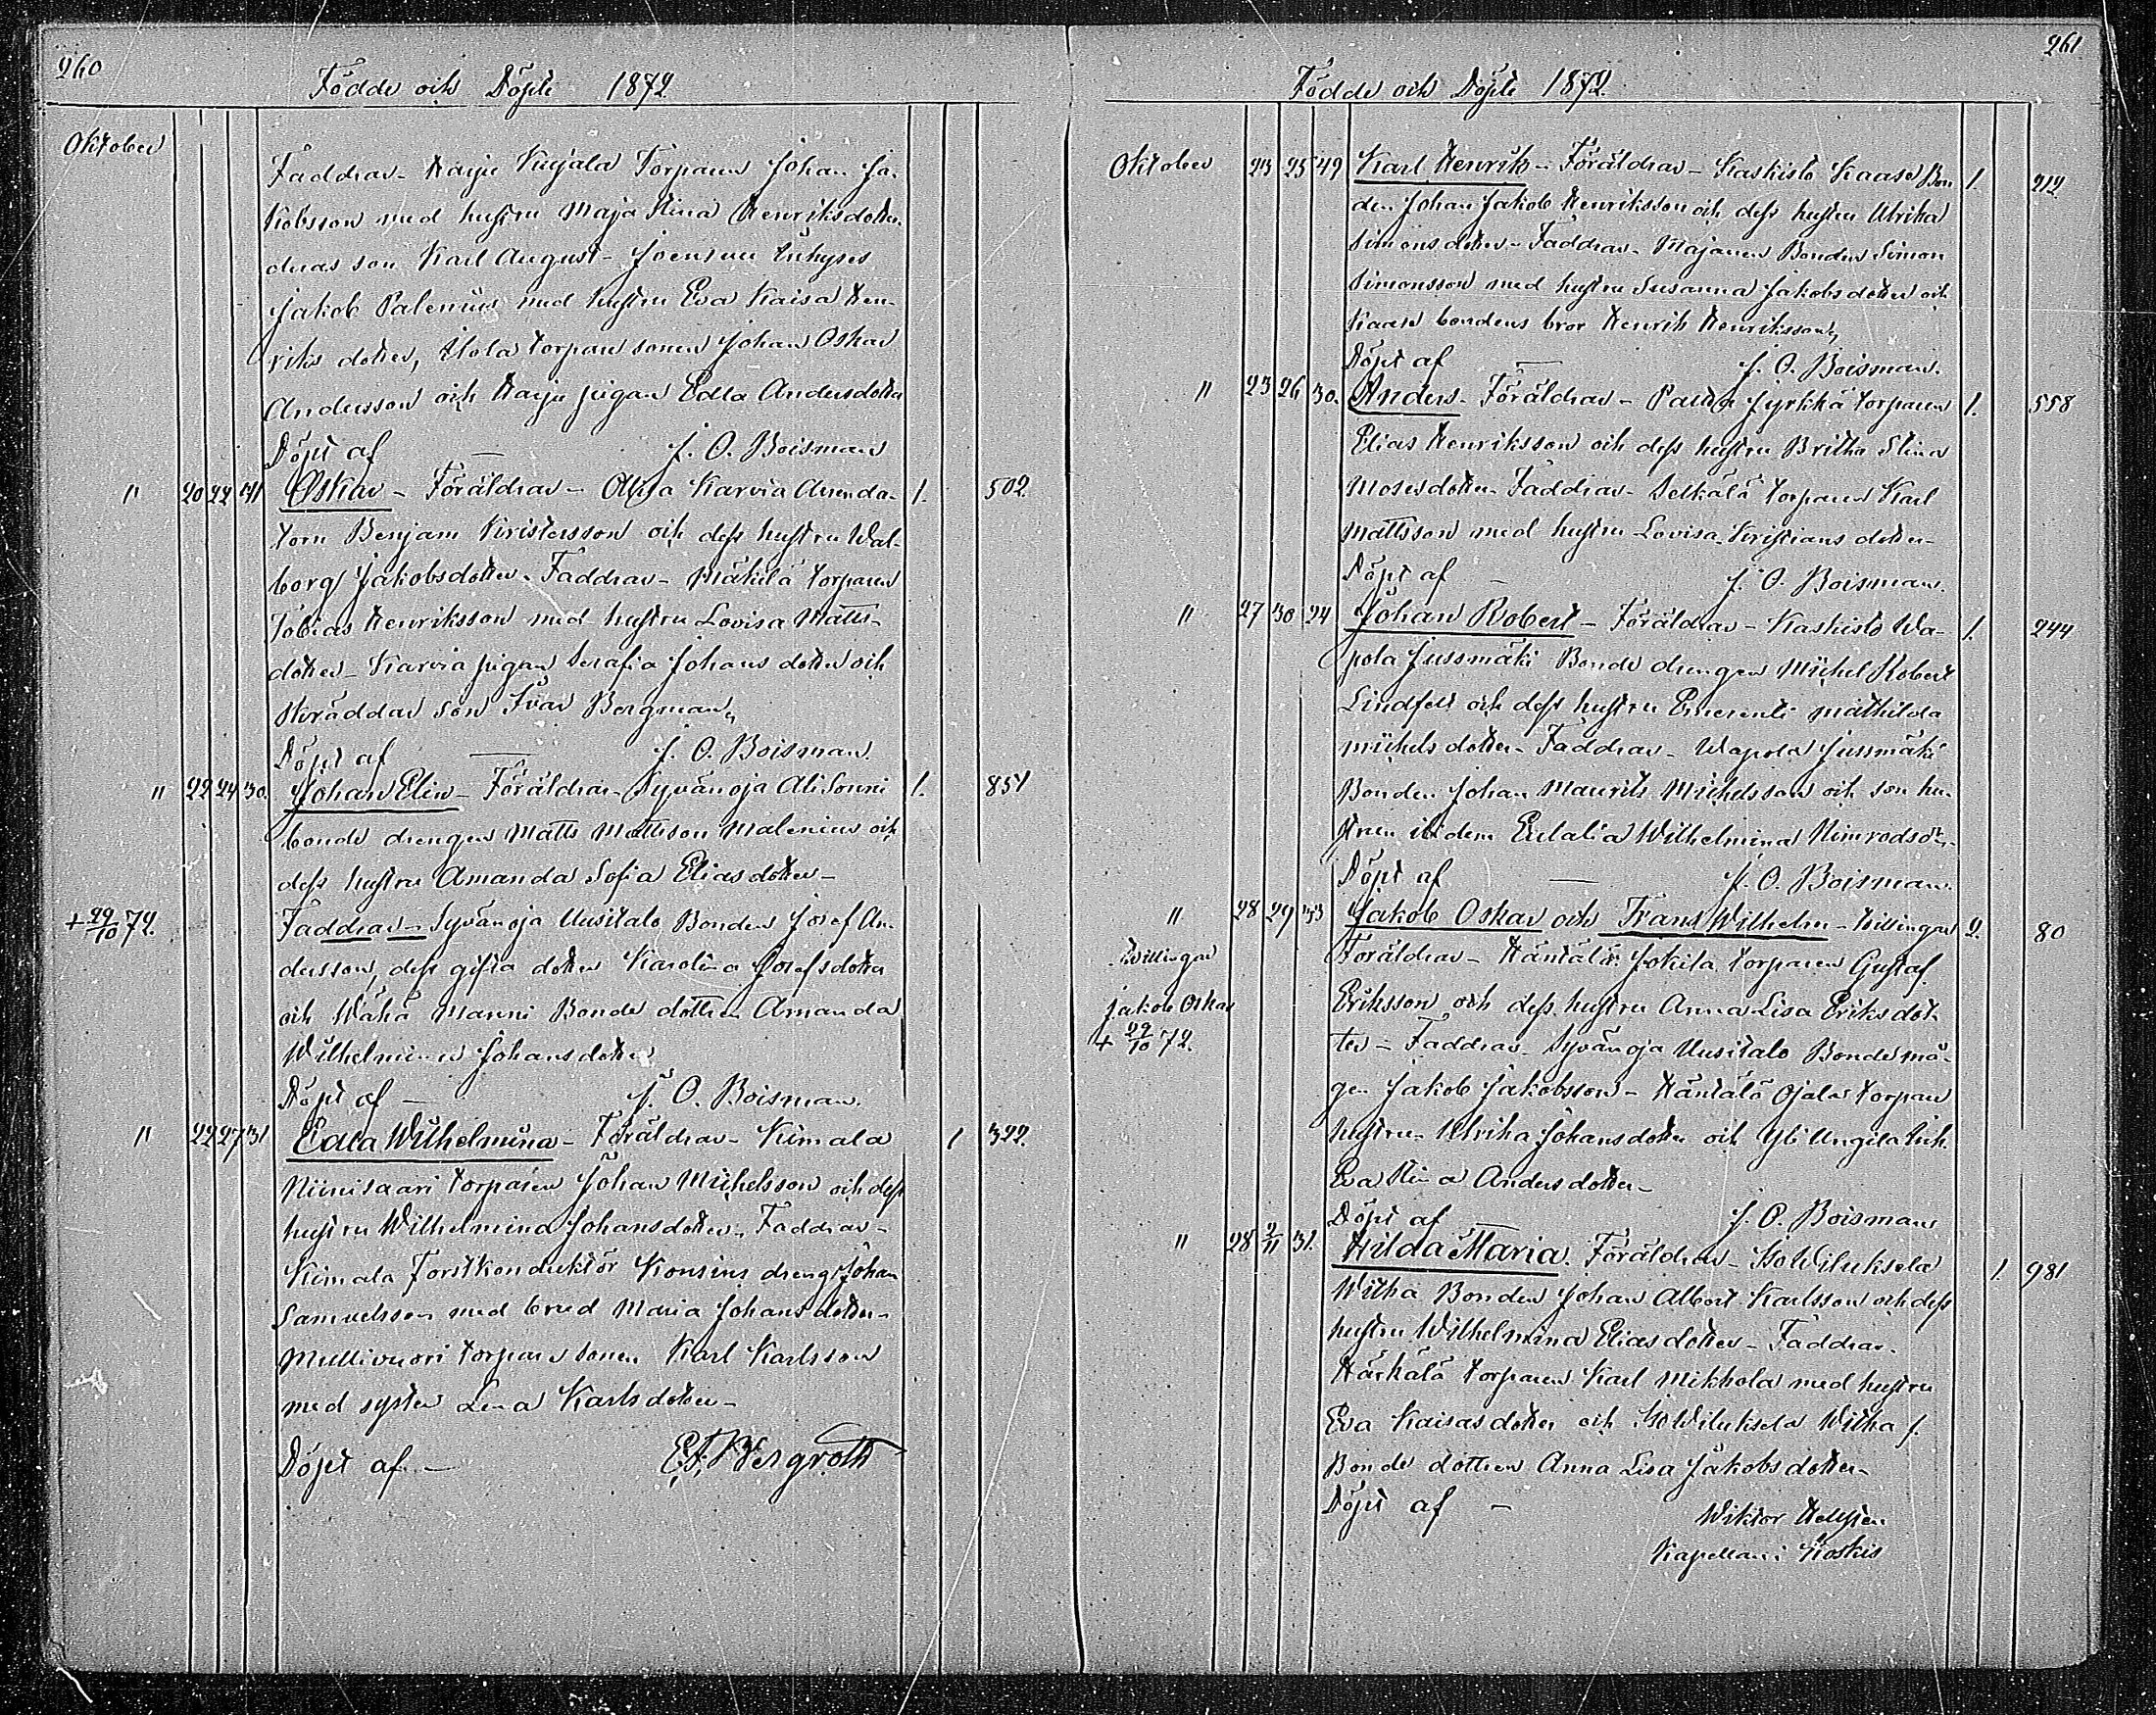 260
Födde och Döpte 1872
Oktober
Faddrar - Harju Kujala Torparen Johan Ja-
kobsson med hustru Maja Stina Henriksdotter
deras son Karl August - Joensuu Inhyses
Jakob Palenius med hustru Eva Kaisa Hen-
riks dotter, Hola torpare sonen Johan Oskar
Andersson och Harju pigan Edla Andersdotter
Döpt af — J. O. Boisman
" 20 22 41 Oskar - Föräldrar - Karvia Arenda- 1. 502.
torn Benjam Kristersson och dess hustru Wal-
borg Jakobsdotter - Faddrar - Mäkilä torparen
Tobias Henriksson med hustru Lovisa Matts-
dotter - Karvia pigan Serafia Johans dotter och
Skräddar son Ivar Bergman,
Döpt af — J. O. Boisman.
" 22 24 30. Johan Elin - Föräldrar - Syvänoja Ali Sonni 1. 851
bonde drengen Matts Mattsson Malenius och
dess hustru Amanda Sofia Elias dotter -
+ 29/10 72. Faddrar - Syvänoja Uusitalo Bonden Josef An-
dersson, dess gifta dotter Karolina Josefsdotter
och Wähä Manni Bonde dottren Amanda
Wilhelmina Johansdotter
Döpt af - J. O. Boisman.
" 22 27 31 Edla Wilhelmina - Föräldrar - Kimala 1 322.
Niinisaari torparen Johan Michelsson och dess
hustru Wilhelmina Johansdotter - Faddrar -
Kimala Forstkonduktör Konsins dreng Johan
Samuelsson med brud Maria Johans dotter -
Myllivuori torpare sonen Karl Karlsson
med syster Lena Karlsdotter -
Döpt af - Bergroth
261
Födde och Döpte 1872
Oktober 23 25 49 Karl Henrik - Föräldrar - Kaskisto Kaase Bon 1. 212
den Johan Jakob Henriksson och dess hustru Ulrika
Simons dotter - Faddrar - Majanen Bonden Simon
Simonsson med hustru Susanna Jakobs dotter och
Kaase bondens bror Henrik Henriksson,
Döpt af — J. O. Boisman.
" 23 26 30. Anders - Föräldrar - Jyrkkä torparen 1. 558
Elias Henriksson och dess hustru Britha Stina
Mosesdotter - Faddrar - Selkälä torparen Karl
Mattsson med hustru Lovisa Kristians dotter -
Döpt af - J. O. Boisman.
" 27 30 24 Johan Robert - Föräldrar - Kaskisto Wa- 1. 244
pola Jussmäki Bonde drengen Michel Robert
Lindfelt och dess hustru Emerenti Mathilda
Michels dotter - Faddrar - Wapola Jussmäki
Bonden Johan Maurits Michelsson och son hu-
strun ibidem Eulalia Wilhelmina Nimrodsdr -
Döpt af — J. O. Boisman.
" 28 29 33 Jakob Oskar och Frans Wilhelm - tvillingar 2. 80
Tvillingar Föräldrar - Häntälä Jokila torparen Gustaf
Jakob Oskar Eriksson och dess hustru Anna Lisa Eriks dot-
+ 29/10 72. ter - Faddrar - Syvänoja Uusitalo Bonde må-
gen Jakob Jakobsson - Häntälä Ojala torpare
hustrun Ulrika Johansdotter och Yli Ungila Inh.
Eva Stina Anders dotter -
Döpt af — J. O. Boisman
" 28 2/11 31. Hilda Maria. Föräldrar - Iso Wiluksela 1. 981
Witka Bonden Johan Albert Karlsson och dess
hustru Wilhelmina Elias dotter - Faddrar -
Härkälä torparen Karl Mikkola med hustru
Eva Kaisas dotter och Iso Wiluksela Witka f.
Bonde dottren Anna Lisa Jakobs dotter -
Döpt af -
Wiktor Hellsten
Kapellan i Koskis